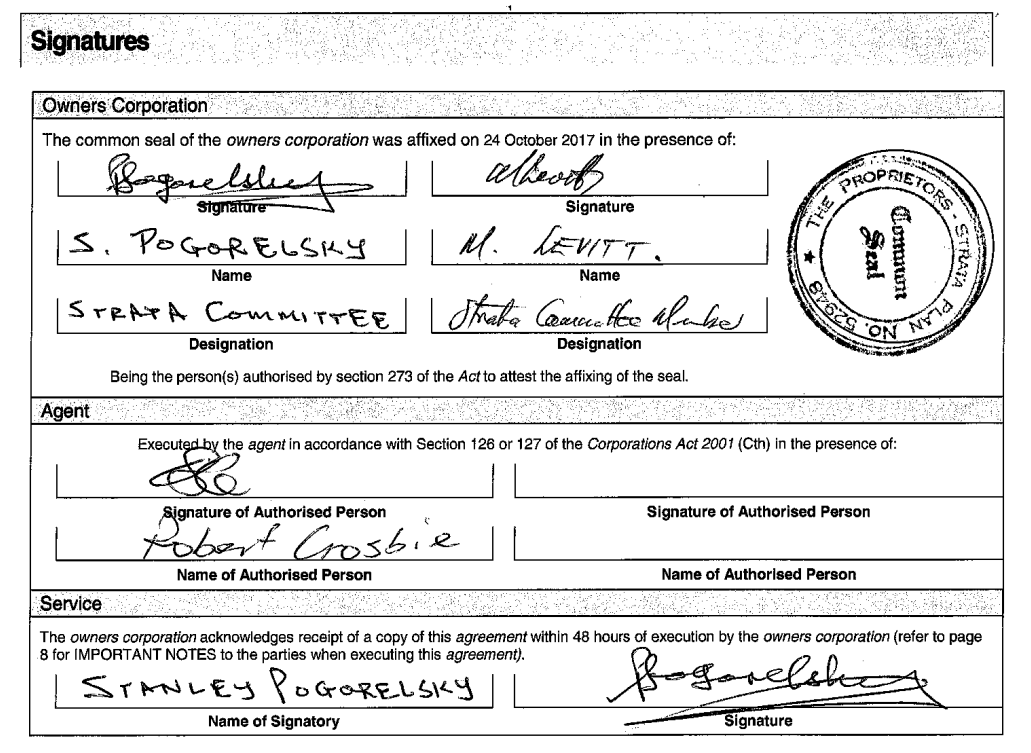 Signatures
Owners Corporation
The common seal of the owners corporation was affixed on 24 October 2017 in the presence of:
Signature Signature
S. POGORELSKY M. LEVITT.
Name Name
STRATA COMMITTEE Strata Committee Member
Designation Designation
THE PROPRIETORS - STRATA PLAN NO. 52948 ★
Common
Seal
Being the person(s) authorised by section 273 of the Act to attest the affixing of the seal.
Agent
Executed by the agent in accordance with Section 126 or 127 of the Corporations Act 2001 (Cth) in the presence of:
Signature of Authorised Person Signature of Authorised Person
Robert Crosbie
Name of Authorised Person Name of Authorised Person
Service
The owners corporation acknowledges receipt of a copy of this agreement within 48 hours of execution by the owners corporation (refer to page
8 for IMPORTANT NOTES to the parties when executing this agreement).
STANLEY POGORELSKY
Name of Signatory Signature